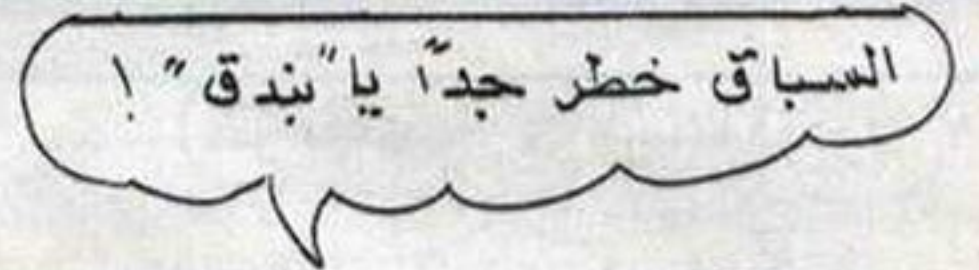 السباق خطر جداً يا "بندق" !